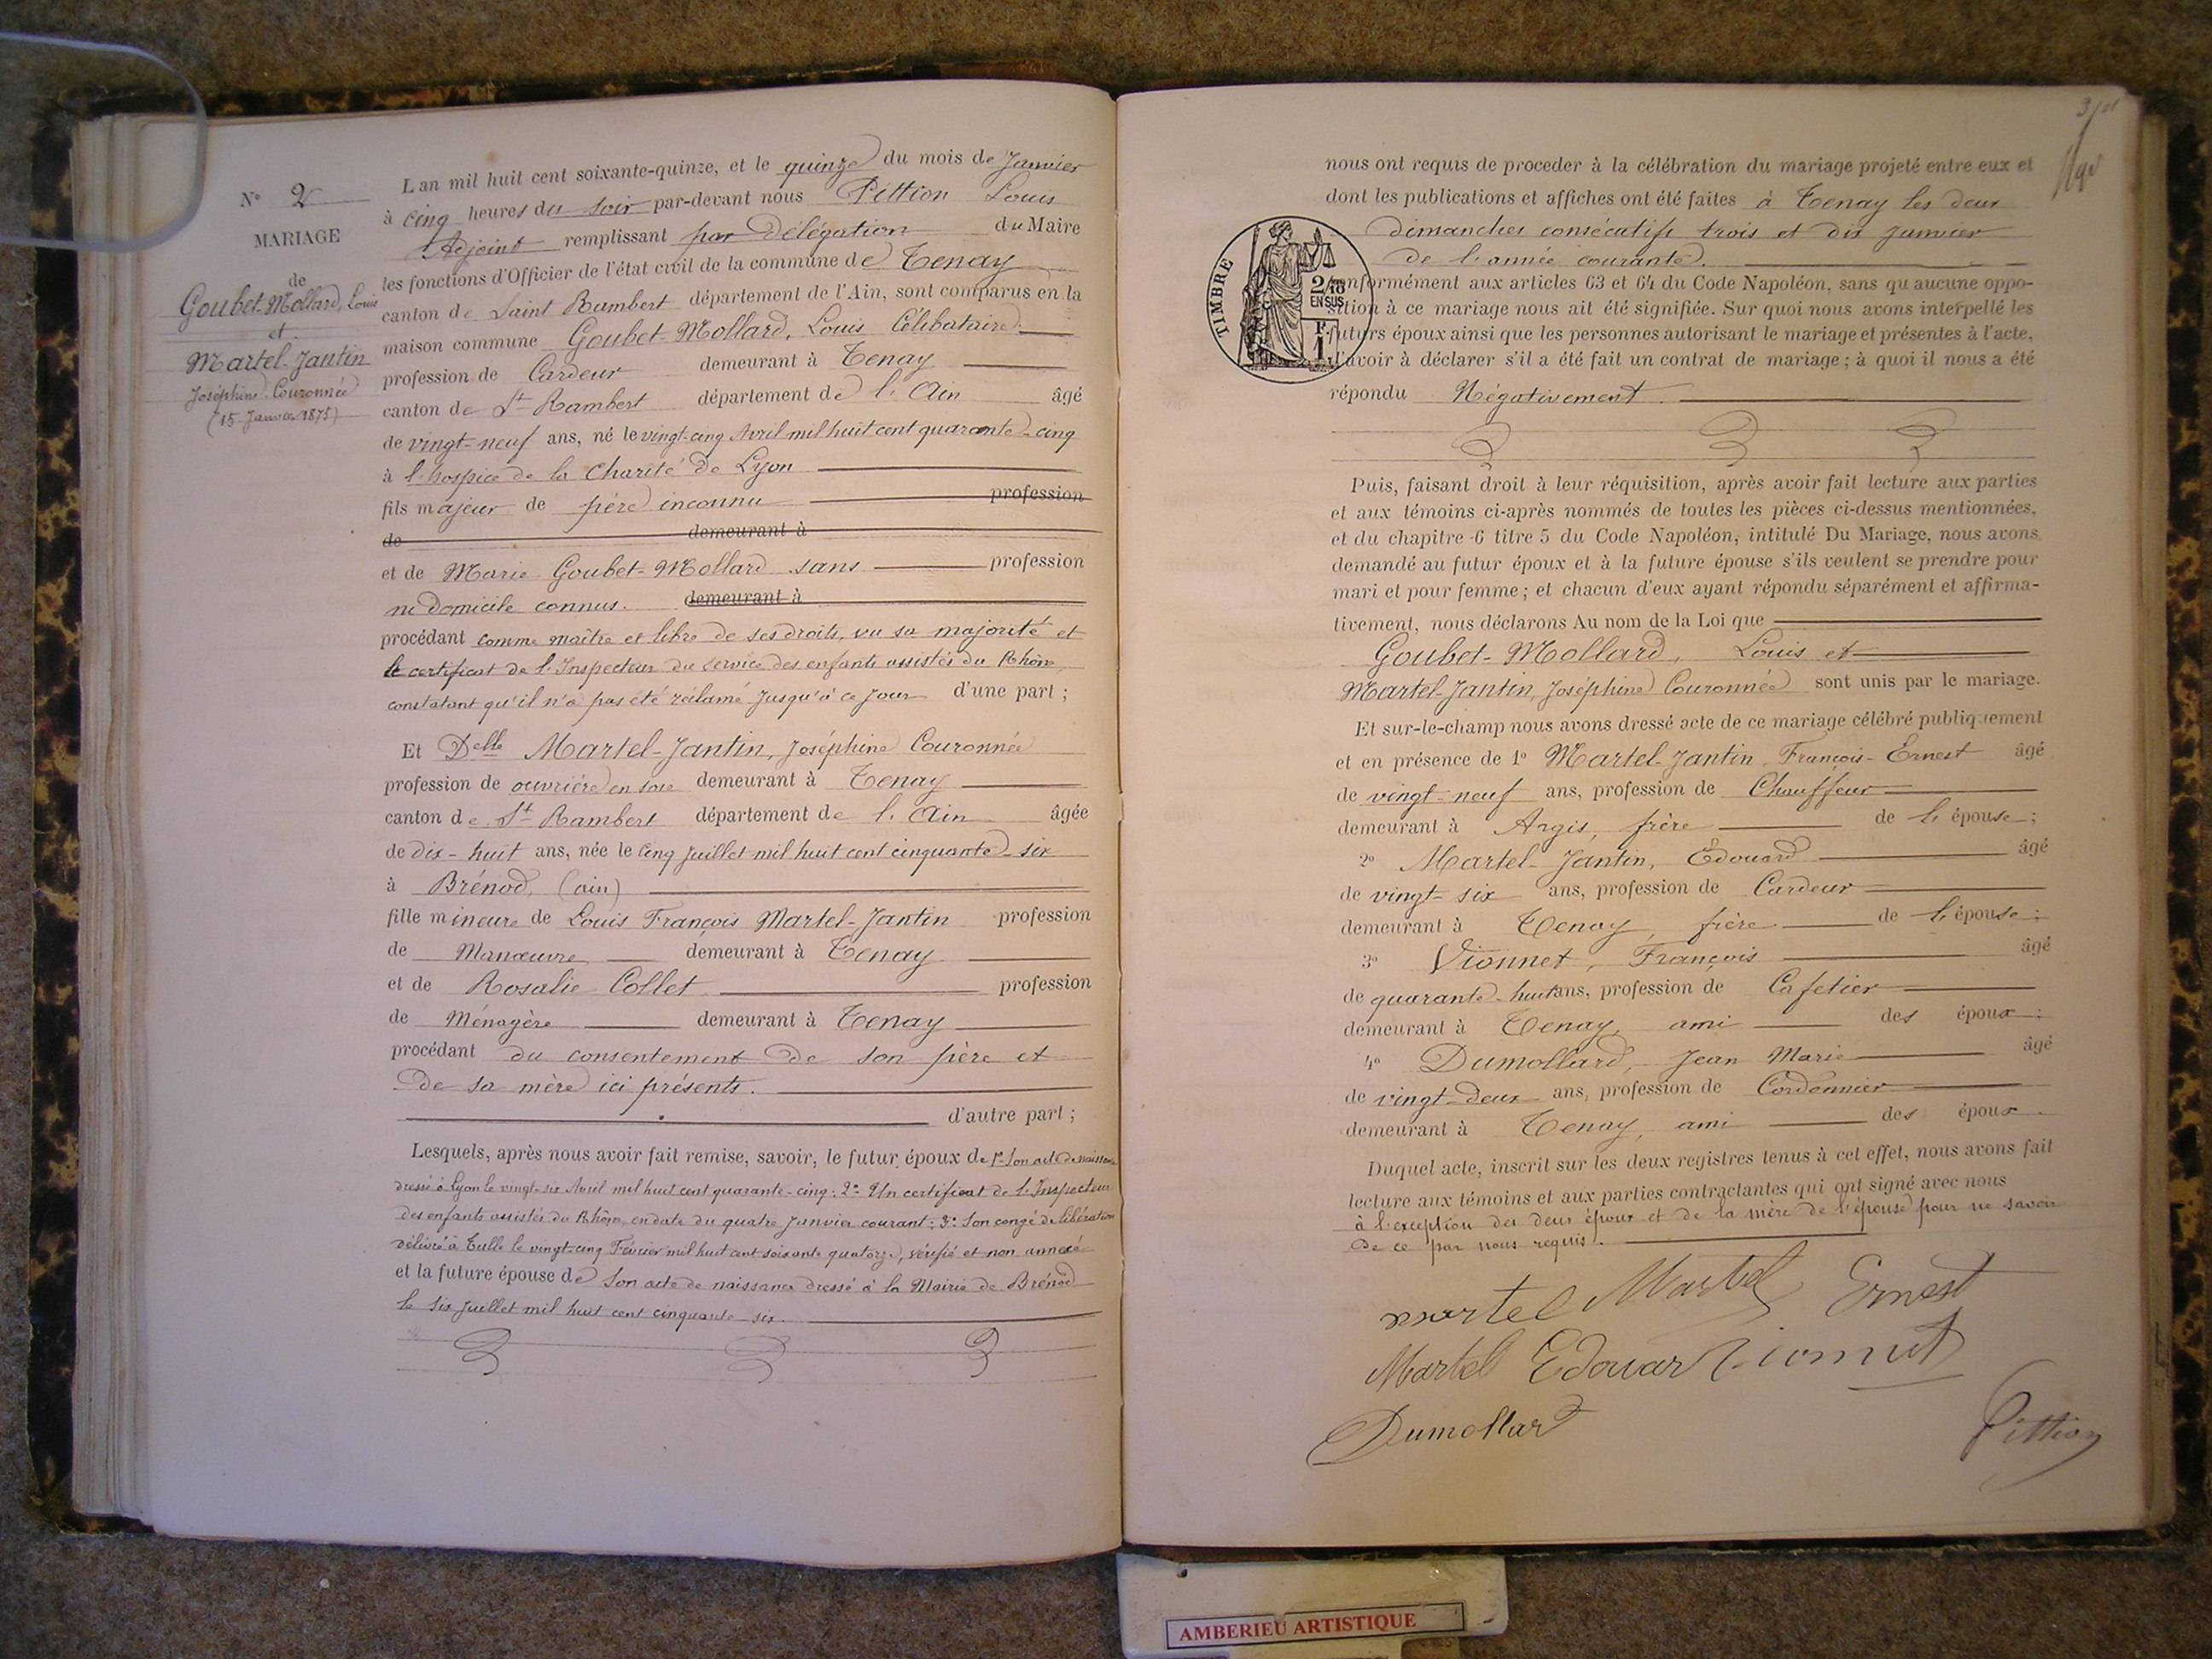 N° 2
MARIAGE
de
Goubet-Mollard, Louis
et
Martel-Jantin
Joséphine Couronnée
(15 Janvier 1875)
L an mil huit cent soixante-quinze, et le quinze du mois de Janvier
à cinq heures du soir par-devant nous Pittion Louis
Adjoint remplissant par Délégation du Maire
les fonctions d'Officier de l'état civil de la commune de Tenay
canton de Saint Rambert département de l'Ain, sont comparus en la
maison commune Goubet-Mollard, Louis Célibataire.
profession de Cardeur demeurant à Tenay
canton de St Rambert département de l'Ain âgé
de vingt-neuf ans, né le vingt-cinq Avril mil huit cent quarante-cinq
à l'hospice de la Charité de Lyon
fils majeur de père inconnu profession
de demeurant à
et de Marie Goubet-Mollard sans profession
ni domicile connus. demeurant à
procédant comme maître et libre de ses droits, vu sa majorité et
le certificat de l'Inspecteur du service des enfants assistés du Rhône,
constatant qu'il n'a pas été réclamé jusqu'à ce jour d'une part ;
Et Delle Martel-Jantin, Joséphine Couronnée
profession de ouvrière en soie demeurant à Tenay
canton de St Rambert département de l'Ain âgée
de dix-huit ans, née le cinq Juillet mil huit cent cinquante-six
à Brénod, (ain)
fille mineure de Louis François Martel-Jantin profession
de Manœuvre demeurant à Tenay
et de Rosalie Collet profession
de Ménagère demeurant à Tenay
procédant du consentement de son père et
de sa mère ici présents.
d'autre part ;
Lesquels, après nous avoir fait remise, savoir, le futur époux de 1° Son acte de naissance
dressé à Lyon le vingt-six Avril mil huit cent quarante-cinq : 2° Un certificat de l'Inspecteur
des enfants assistés du Rhône, en date du quatre Janvier courant ; 3° Son congé de libération
délivré à Tulle le vingt-cinq Février mil huit cent soixante quatorze, vérifié et non annexé
et la future épouse de Son acte de naissance dressé à la Mairie de Brénod
le six Juillet mil huit cent cinquante-six.
nous ont requis de proceder à la célébration du mariage projeté entre eux et
dont les publications et affiches ont été faites à Tenay les deux
dimanches consécutifs trois et dix janvier
de l'année courante.
TIMBRE
2/10
EN SUS
F.
1
conformément aux articles 63 et 64 du Code Napoléon, sans qu'aucune oppo-
sition à ce mariage nous ait été signifiée. Sur quoi nous avons interpellé les
futurs époux ainsi que les personnes autorisant le mariage et présentes à l'acte,
d'avoir à déclarer s'il a été fait un contrat de mariage ; à quoi il nous a été
répondu Négativement.
Puis, faisant droit à leur réquisition, après avoir fait lecture aux parties
et aux témoins ci-après nommés de toutes les pièces ci-dessus mentionnées,
et du chapitre 6 titre 5 du Code Napoléon, intitulé Du Mariage, nous avons
demandé au futur époux et à la future épouse s'ils veulent se prendre pour
mari et pour femme ; et chacun d'eux ayant répondu séparément et affirma-
tivement, nous déclarons Au nom de la Loi que
Goubet-Mollard, Louis et
Martel-Jantin, Joséphine Couronnée sont unis par le mariage.
Et sur-le-champ nous avons dressé acte de ce mariage célébré publiquement
et en présence de 1° Martel-Jantin François-Ernest âgé
de vingt-neuf ans, profession de Chauffeur
demeurant à Argis, frère de l'épouse ;
2° Martel-Jantin, Édouard âgé
de vingt-six ans, profession de Cardeur
demeurant à Tenay, frère de l'épouse ;
3° Vionnet, François âgé
de quarante-huit ans, profession de Cafetier
demeurant à Tenay, ami des époux ;
4° Dumollard, Jean Marie âgé
de vingt-deux ans, profession de Cordonnier
demeurant à Tenay, ami des époux.
Duquel acte, inscrit sur les deux registres tenus à cet effet, nous avons fait
lecture aux témoins et aux parties contractantes qui ont signé avec nous
à l'exception des deux époux et de la mère de l'épouse pour ne savoir
de ce par nous requis.
martel Martel Ernest
Martel Edouar Vionnet
Dumollard
Pittion
AMBERIEU ARTISTIQUE